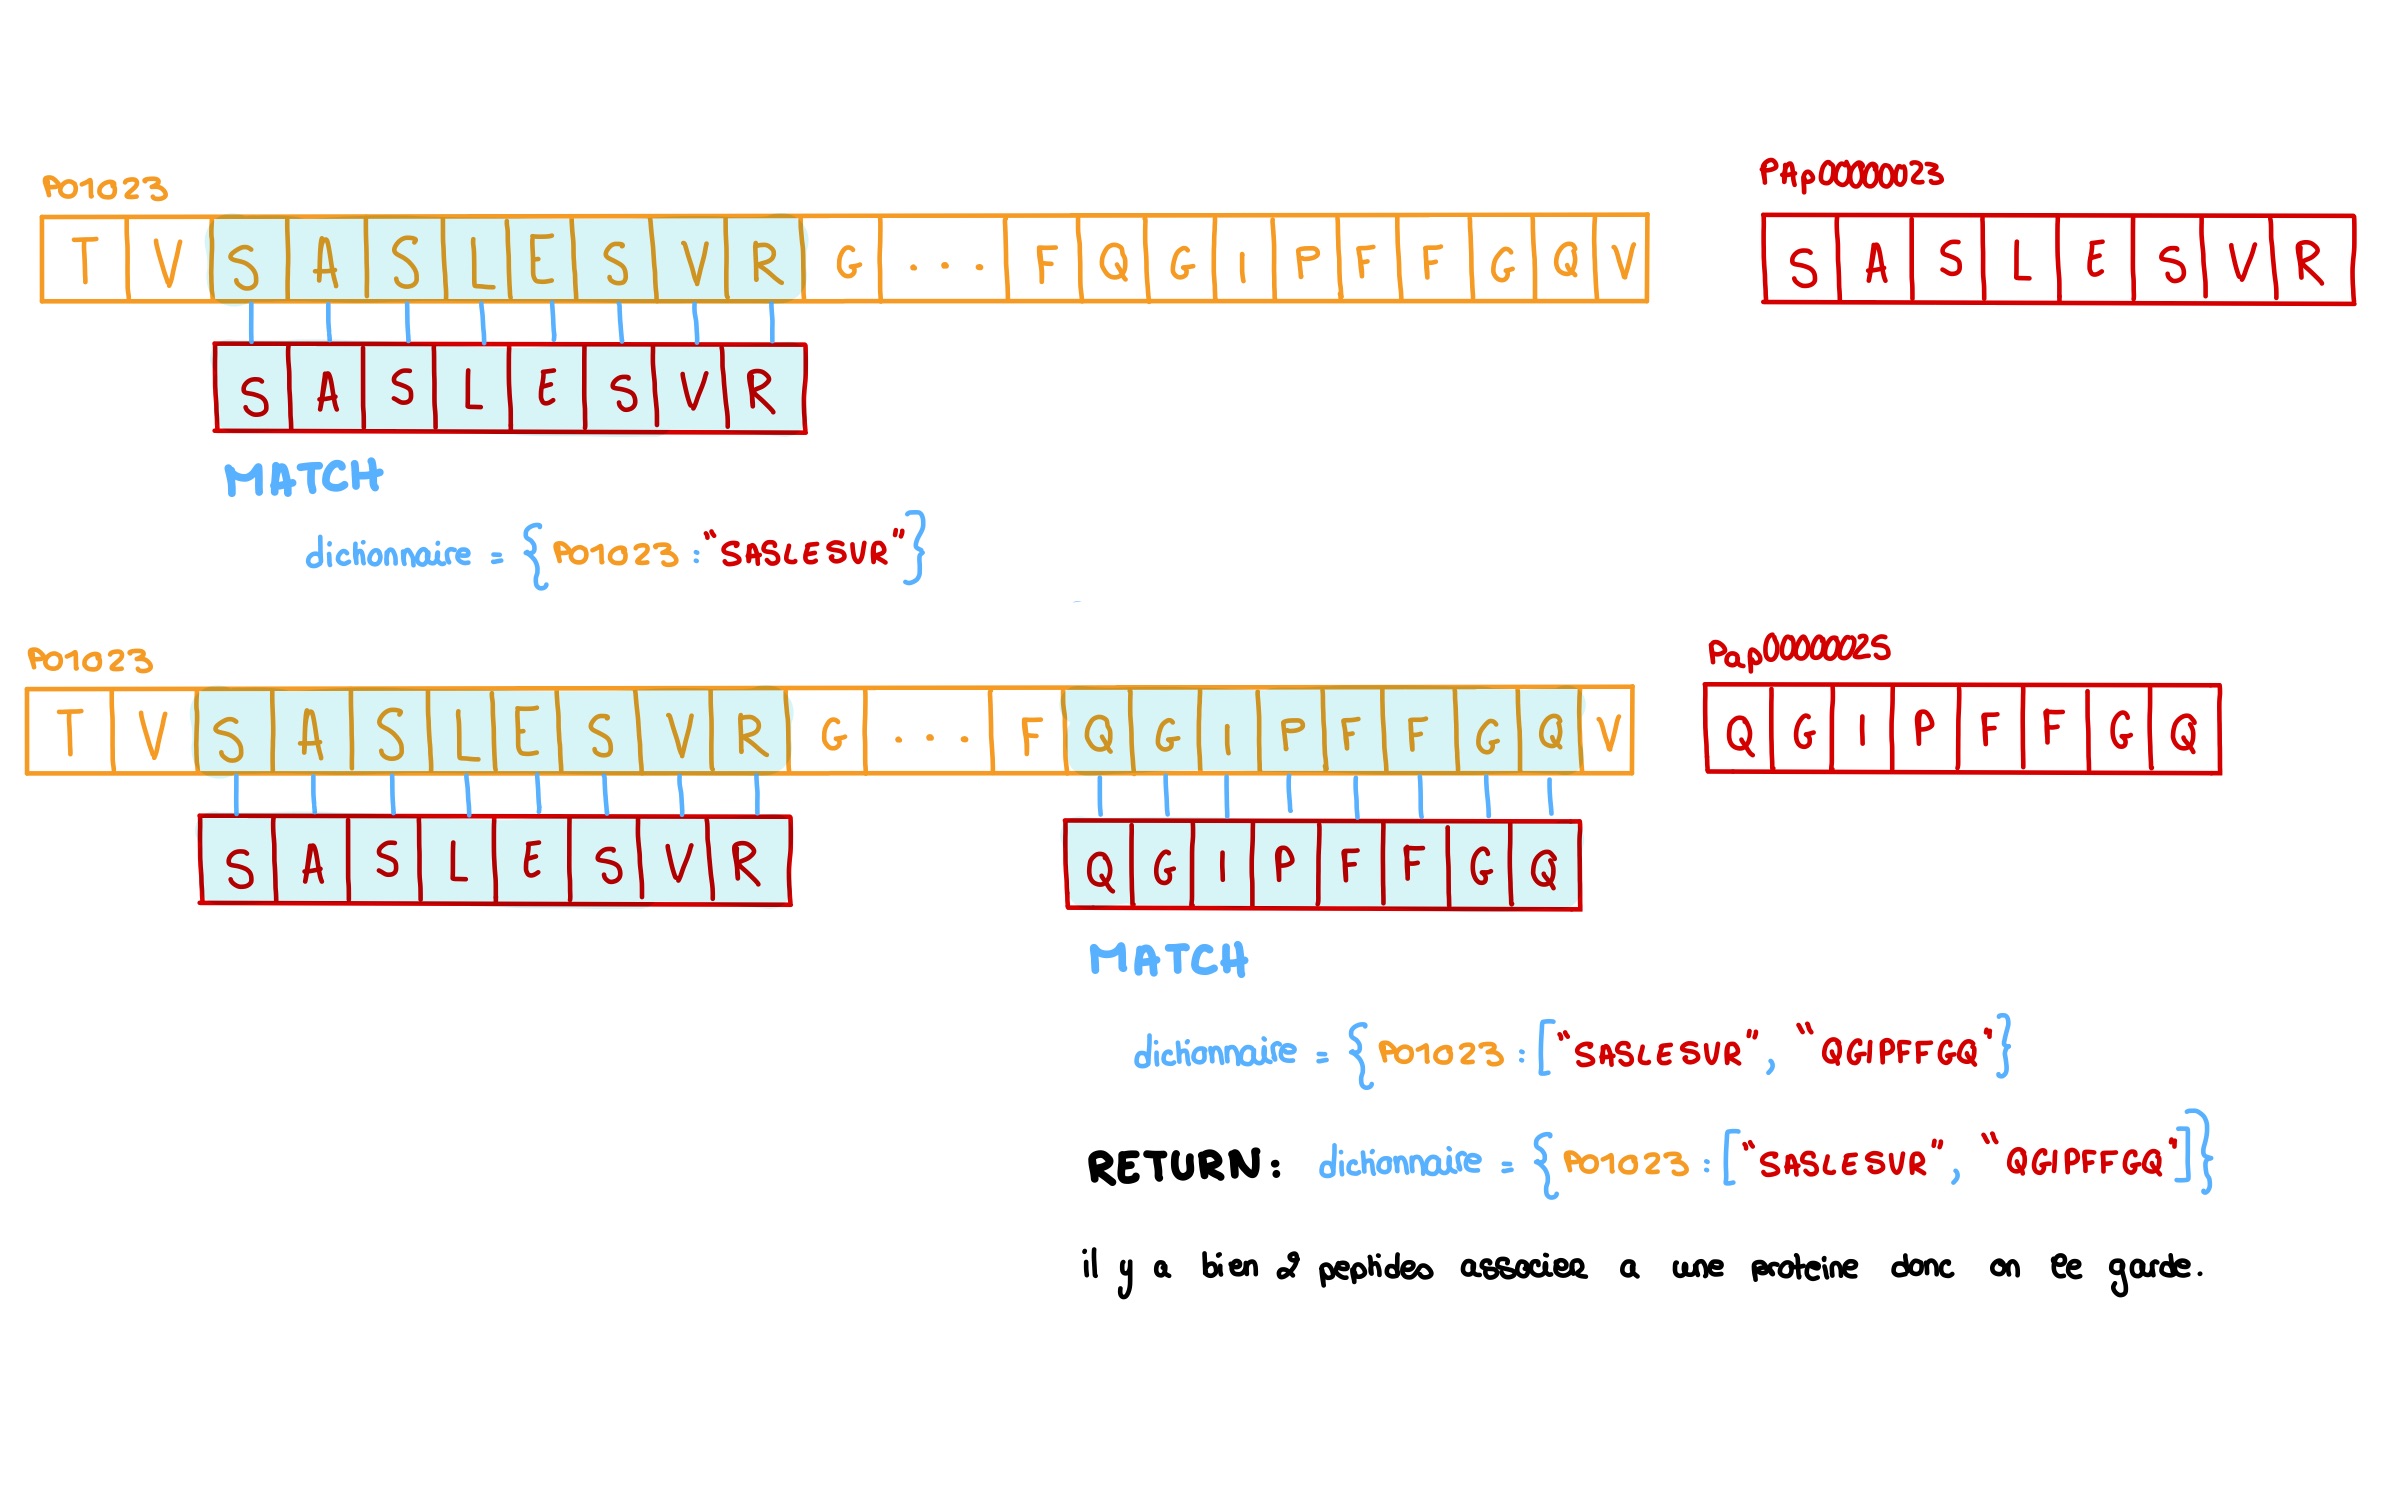 P01023
PAp00000023
T V S A S L E S V R G ... F Q G I P F F G Q V
S A S L E S V R
S A S L E S V R
MATCH
dictionnaire = {P01023 : "SASLESVR"}
P01023
Pap00000025
T V S A S L E S V R G ... F Q G I P F F G Q V
Q G I P F F G Q
S A S L E S V R
Q G I P F F G Q
MATCH
dictionnaire = {P01023 : ["SASLESVR", "QGIPFFGQ"}
RETURN: dictionnaire = {P01023 : ["SASLESVR", "QGIPFFGQ"]}
il y a bien 2 peptides associer a une proteine donc on le garde.